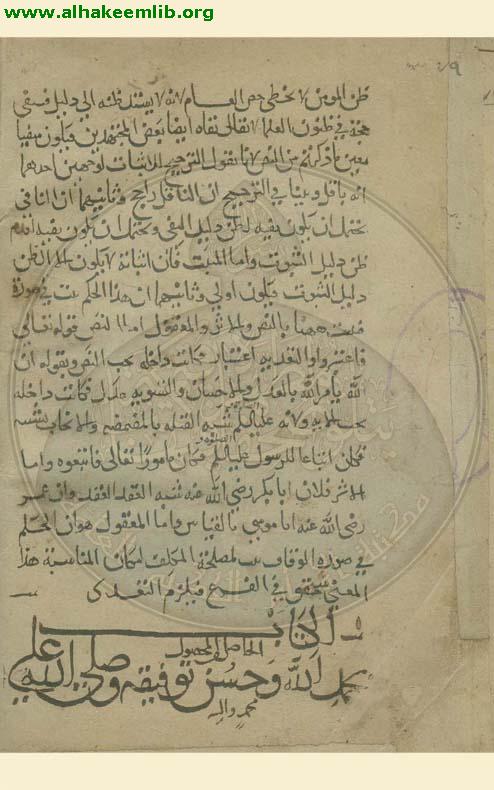 www.alhakeemlib.org
ظن المومن لا يخطى خص العام لانه لا يستند ظنه الى دليل فبقى
حجة في ظنون العلما لا يقال نفاه ايضا بعض المجتهدين فيكون منفيا
بعين ما ذكرتم من النص لانا نقول الترجيح للاثبات لوجهين احدهما
انه ناقل وبينا في الترجيح ان الناقل راجح وثانيهما ان النافي
يحتمل ان يكون نفيه لظن دليل النفي ويحتمل ان يكون نفيه لعدم
ظن دليل الثبوت واما المثبت فان اثباته لا يكون الا لظن
دليل الثبوت فيكون اولى وثانيهما ان هذا الحكم ثبت في صورة
فيثبت ههنا بالنص والاثر والمعقول اما النص قوله تعالى
فاعتبروا والتعدية اعتبار فكانت داخلة تحت النص وبقوله ان
الله يامر بالعدل والاحسان والتسوية عدل فكانت داخلة
تحت الاية ولانه عليه السلم شبه القبلة بالمضمضة
فكان اتباعا للرسول عليه السلم فكان مامورا لقوله تعالى فاتبعوه واما
الاثر فلان ابا بكر رضي الله عنه شبه العهد بالعقد وامر عمر
رضي الله عنه ابا موسى بالقياس واما المعقول هو ان الحكم
في صورة الوفاق ثبت لمصلحة المكلف لمكان المناسبة هذا
المعنى متحقق في الفرع فيلزم التعدى
تم الكتاب
الحاصل المحصول
بحمد الله وحسن توفيقه وصلى الله على
محمد واله